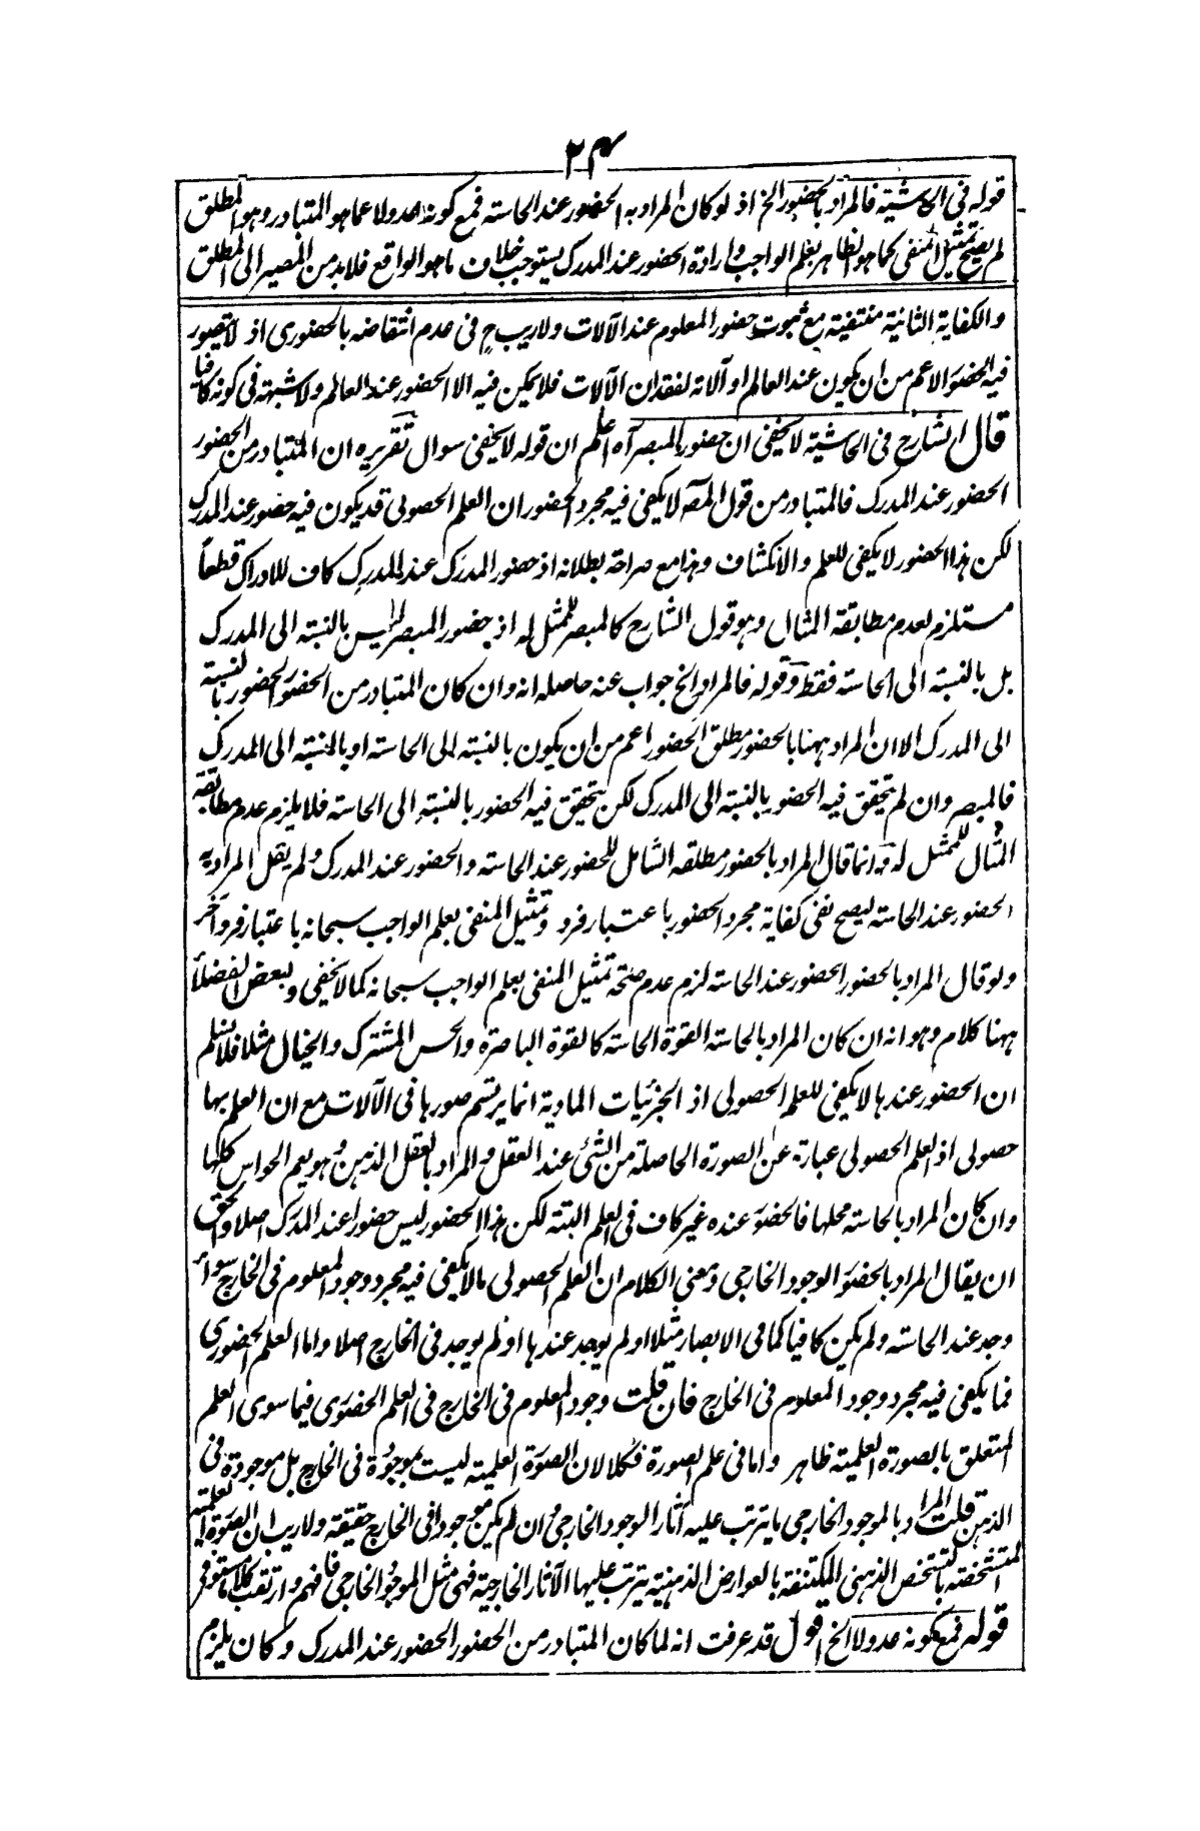 ٢٤
قوله فى الحاشية فالمراد بالحضور الخ اذ لو كان المراد به الحضور عند الحاسة فمع كونه عدولا عما هو المتبادر وهو المطلق
لم يصح تمثيل المنفى كما هو الظاهر بعلم الواجب وارادة الحضور عند المدرك يستوجب خلاف ما هو الواقع فلابد من المصير الى المطلق
والكفاية الثانية منتفية مع ثبوت حضور المعلوم عند الآلات ولاريب ح فى عدم انتقاضه بالحضورى اذ لا يتصور
فيه الحضور الاعم من ان يكون عند العالم او آلاته لفقدان الآلات فلا يمكن فيه الا الحضور عند العالم ولا شبهة فى كونه كافيا
قال الشارح فى الحاشية لا يخفى ان حضور المبصر آه اعلم ان قوله لا يخفى سوال تقريره ان المتبادر من الحضور
الحضور عند المدرك فالمتبادر من قول المصـ لا يكفى فيه مجرد الحضور ان العلم الحصولى قد يكون فيه حضور عند المدرك
لكن هذا الحضور لا يكفى للعلم والانكشاف وهذا مع صراحة بطلانه اذ حضور المدرَك عند المدرِك كاف للادراك قطعاً
مستلزم لعدم مطابقة المثال وهو قول الشارح كالمبصر للممثل له اذ حضور المبصر ليس بالنسبة الى المدرك
بل بالنسبة الى الحاسة فقط وقوله فالمراد الخ جواب عنه حاصله انه وان كان المتبادر من الحضور الحضور بالنسبة
الى المدرك الا ان المراد ههنا بالحضور مطلق الحضور اعم من ان يكون بالنسبة الى الحاسة او بالنسبة الى المدرك
فالمبصر وان لم يتحقق فيه الحضور بالنسبة الى المدرك لكن يتحقق فيه الحضور بالنسبة الى الحاسة فلا يلزم عدم مطابقة
المثال للممثل له وانما قال المراد بالحضور مطلقه الشامل للحضور عند الحاسة والحضور عند المدرك ولم يقل المراد به
الحضور عند الحاسة ليصح نفى كفاية مجرد الحضور باعتبار فرد وتمثيل المنفى بعلم الواجب سبحانه باعتبار فرد آخر
ولو قال المراد بالحضور الحضور عند الحاسة لزم عدم صحة تمثيل المنفى بعلم الواجب سبحانه كما لا يخفى وبعض الفضلاء
ههنا كلام وهو انه ان كان المراد بالحاسة القوة الحاسة كالقوة الباصرة والحس المشترك والخيال مثلا فلا نسلم
ان الحضور عندها لا يكفى للعلم الحصولى اذ الجزئيات المادية انما يرتسم صورها فى الآلات مع ان العلم بها
حصولى اذ العلم الحصولى عبارة عن الصورة الحاصلة من الشئ عند العقل والمراد بالعقل الذهن وهو يعم الحواس كلها
وان كان المراد بالحاسة محلها فالحضور عنده غير كاف فى العلم البتة لكن هذا الحضور ليس حضورا عند المدرك اصلا والحق
ان يقال المراد بالحضور الوجود الخارجى ومعنى الكلام ان العلم الحصولى مالا يكفى فيه مجرد وجود المعلوم فى الخارج سواء
وجد عند الحاسة ولم يكن كافيا كما فى الابصار مثلا او لم يوجد عندها او لم يوجد فى الخارج اصلا واما العلم الحضورى
فما يكفى فيه مجرد وجود المعلوم فى الخارج فان قلت وجود المعلوم فى الخارج فى العلم الحضورى فيما سوى العلم
المتعلق بالصورة العلمية ظاهر واما فى علم الصورة فكلا لان الصورة العلمية ليست بموجودة فى الخارج بل موجودة فى
الذهن قلت المراد بالموجود الخارجى ما يترتب عليه آثار الوجود الخارجى وان لم يكن موجودا فى الخارج حقيقة ولاريب ان الصورة العلمية
المتشخصة بالتشخص الذهنى المكتنفة بالعوارض الذهنية يترتب عليها الآثار الخارجية فهى مثل الموجود الخارجى فافهم وارتقب كلاما ستوفر
قوله فمع كونه عدولا الخ اقول قد عرفت انه لما كان المتبادر من الحضور الحضور عند المدرك وكان يلزم